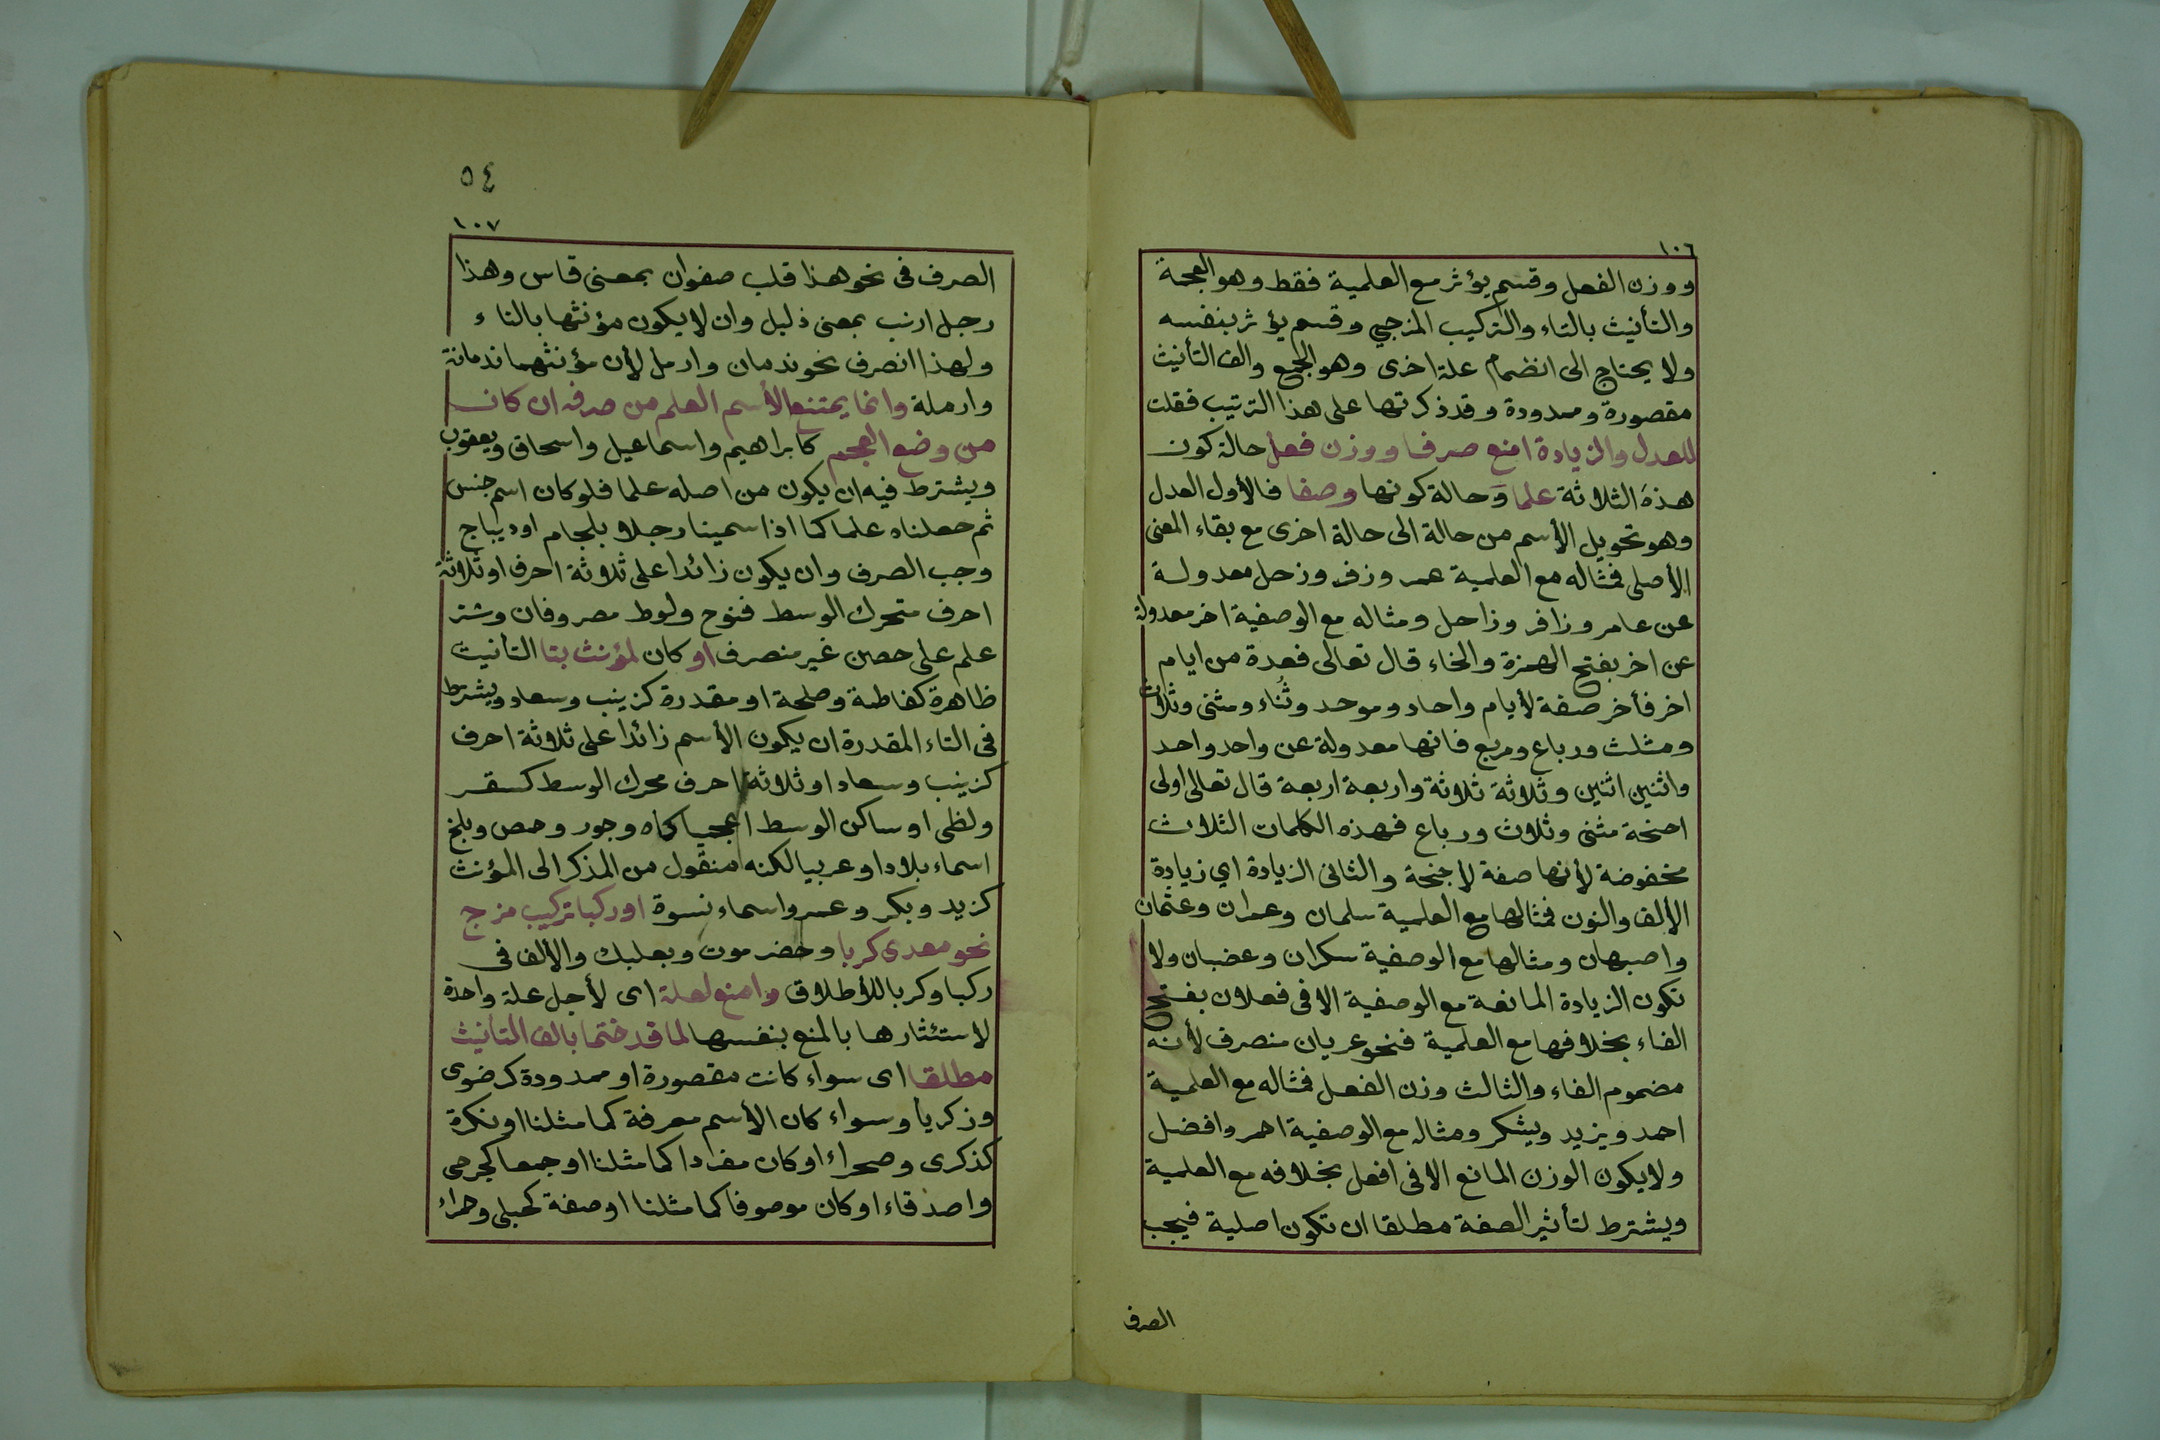 ١٠٦
ووزن الفعل وقسم يؤثر مع العلمية فقط وهو العجمة
والتأنيث بالتاء والتركيب المزجي وقسم يؤثر بنفسه
ولا يحتاج الى انضمام علة اخرى وهو الجمع والف التأنيث
مقصورة وممدودة وقد ذكرتها على هذا الترتيب فقلت
للعدل والزيادة امنع صرفا ووزن فعل حالة كون
هذه الثلاثة علما وحالة كونها وصفا فالأول العدل
وهو تحويل الأسم من حالة الى حالة اخرى مع بقاء المعنى
الأصلى فمثاله مع العلمية عمر وزفر وزحل معدولة
عن عامر وزافر وزاحل ومثاله مع الوصفية اخر معدولة
عن اخر بفتح الهمزة والخاء قال تعالى فعدة من ايام
اخر فأخر صفة لأيام واحاد وموحد وثُناء ومثنى وثلاث
ومثلث ورباع ومربع فانها معدولة عن واحد واحد
واثنين اثنين وثلاثة ثلاثة واربعة اربعة قال تعالى اولى
اجنحة مثنى وثلاث ورباع فهذه الكلمات الثلاث
مخفوضة لأنها صفة لاجنحة والثانى الزيادة اي زيادة
الألف والنون فمثالها مع العلمية سلمان وعمران وعثمان
واصبهان ومثالها مع الوصفية سكران وعضبان ولا
تكون الزيادة المانعة مع الوصفية الا فى فعلان بفتح
الفاء بخلافها مع العلمية فنحو عريان منصرف لأنه
مضموم الفاء والثالث وزن الفعل فمثاله مع العلمية
احمد ويزيد ويشكر ومثاله مع الوصفية احمر وافضل
ولا يكون الوزن المانع الا فى افعل بخلافه مع العلمية
ويشترط لتأثير الصفة مطلقا ان تكون اصلية فيجب
الصرف
٥٤
١٠٧
الصرف فى نحو هذا قلب صفوان بمعنى قاس وهذا
رجل ارنب بمعنى ذليل وان لا يكون مؤنثها بالتاء
ولهذا انصرف نحو ندمان وارمل لأن مؤنثهما ندمانة
وارملة وانما يمتنع الأسم العلم من صرفه ان كان
من وضع العجم كابراهيم واسماعيل واسحاق ويعقوب
ويشترط فيه ان يكون من اصله علما فلو كان اسم جنس
ثم جعلناه علما كما اذا سمينا رجلا بلجام او ديباج
وجب الصرف وان يكون زائدا على ثلاثة احرف او ثلاثة
احرف متحرك الوسط فنوح ولوط مصروفان وشتر
علم على حصن غير منصرف او كان لمؤنث بتا التأنيث
ظاهرة كفاطمة وطلحة او مقدرة كزينب وسعاد ويشترط
فى التاء المقدرة ان يكون الأسم زائدا على ثلاثة احرف
كزينب وسعاد او ثلاثة احرف محرك الوسط كسقر
ولظى او ساكن الوسط اعجميا كماه وجور وحمص وبلخ
اسماء بلاد او عربيا لكنه منقول من المذكر الى المؤنث
كزيد وبكر وعمرو اسماء نسوة او ركبا تركيب مزج
نحو معدى كربا وحضرموت وبعلبك والألف فى
ركبا وكربا للأطلاق وامنع لعلة اى لأجل علة واحدة
لاستئثارها بالمنع بنفسها لما قد ختما بالف التانيث
مطلقا اى سواء كانت مقصورة او ممدودة كرضوى
وزكريا وسواء كان الأسم معرفة كما مثلنا او نكرة
كذكرى وصحراء او كان مفردا كما مثلنا او جمعا كجرحى
واصدقاء او كان موصوفا كما مثلنا او صفة كحبلى وحمراء